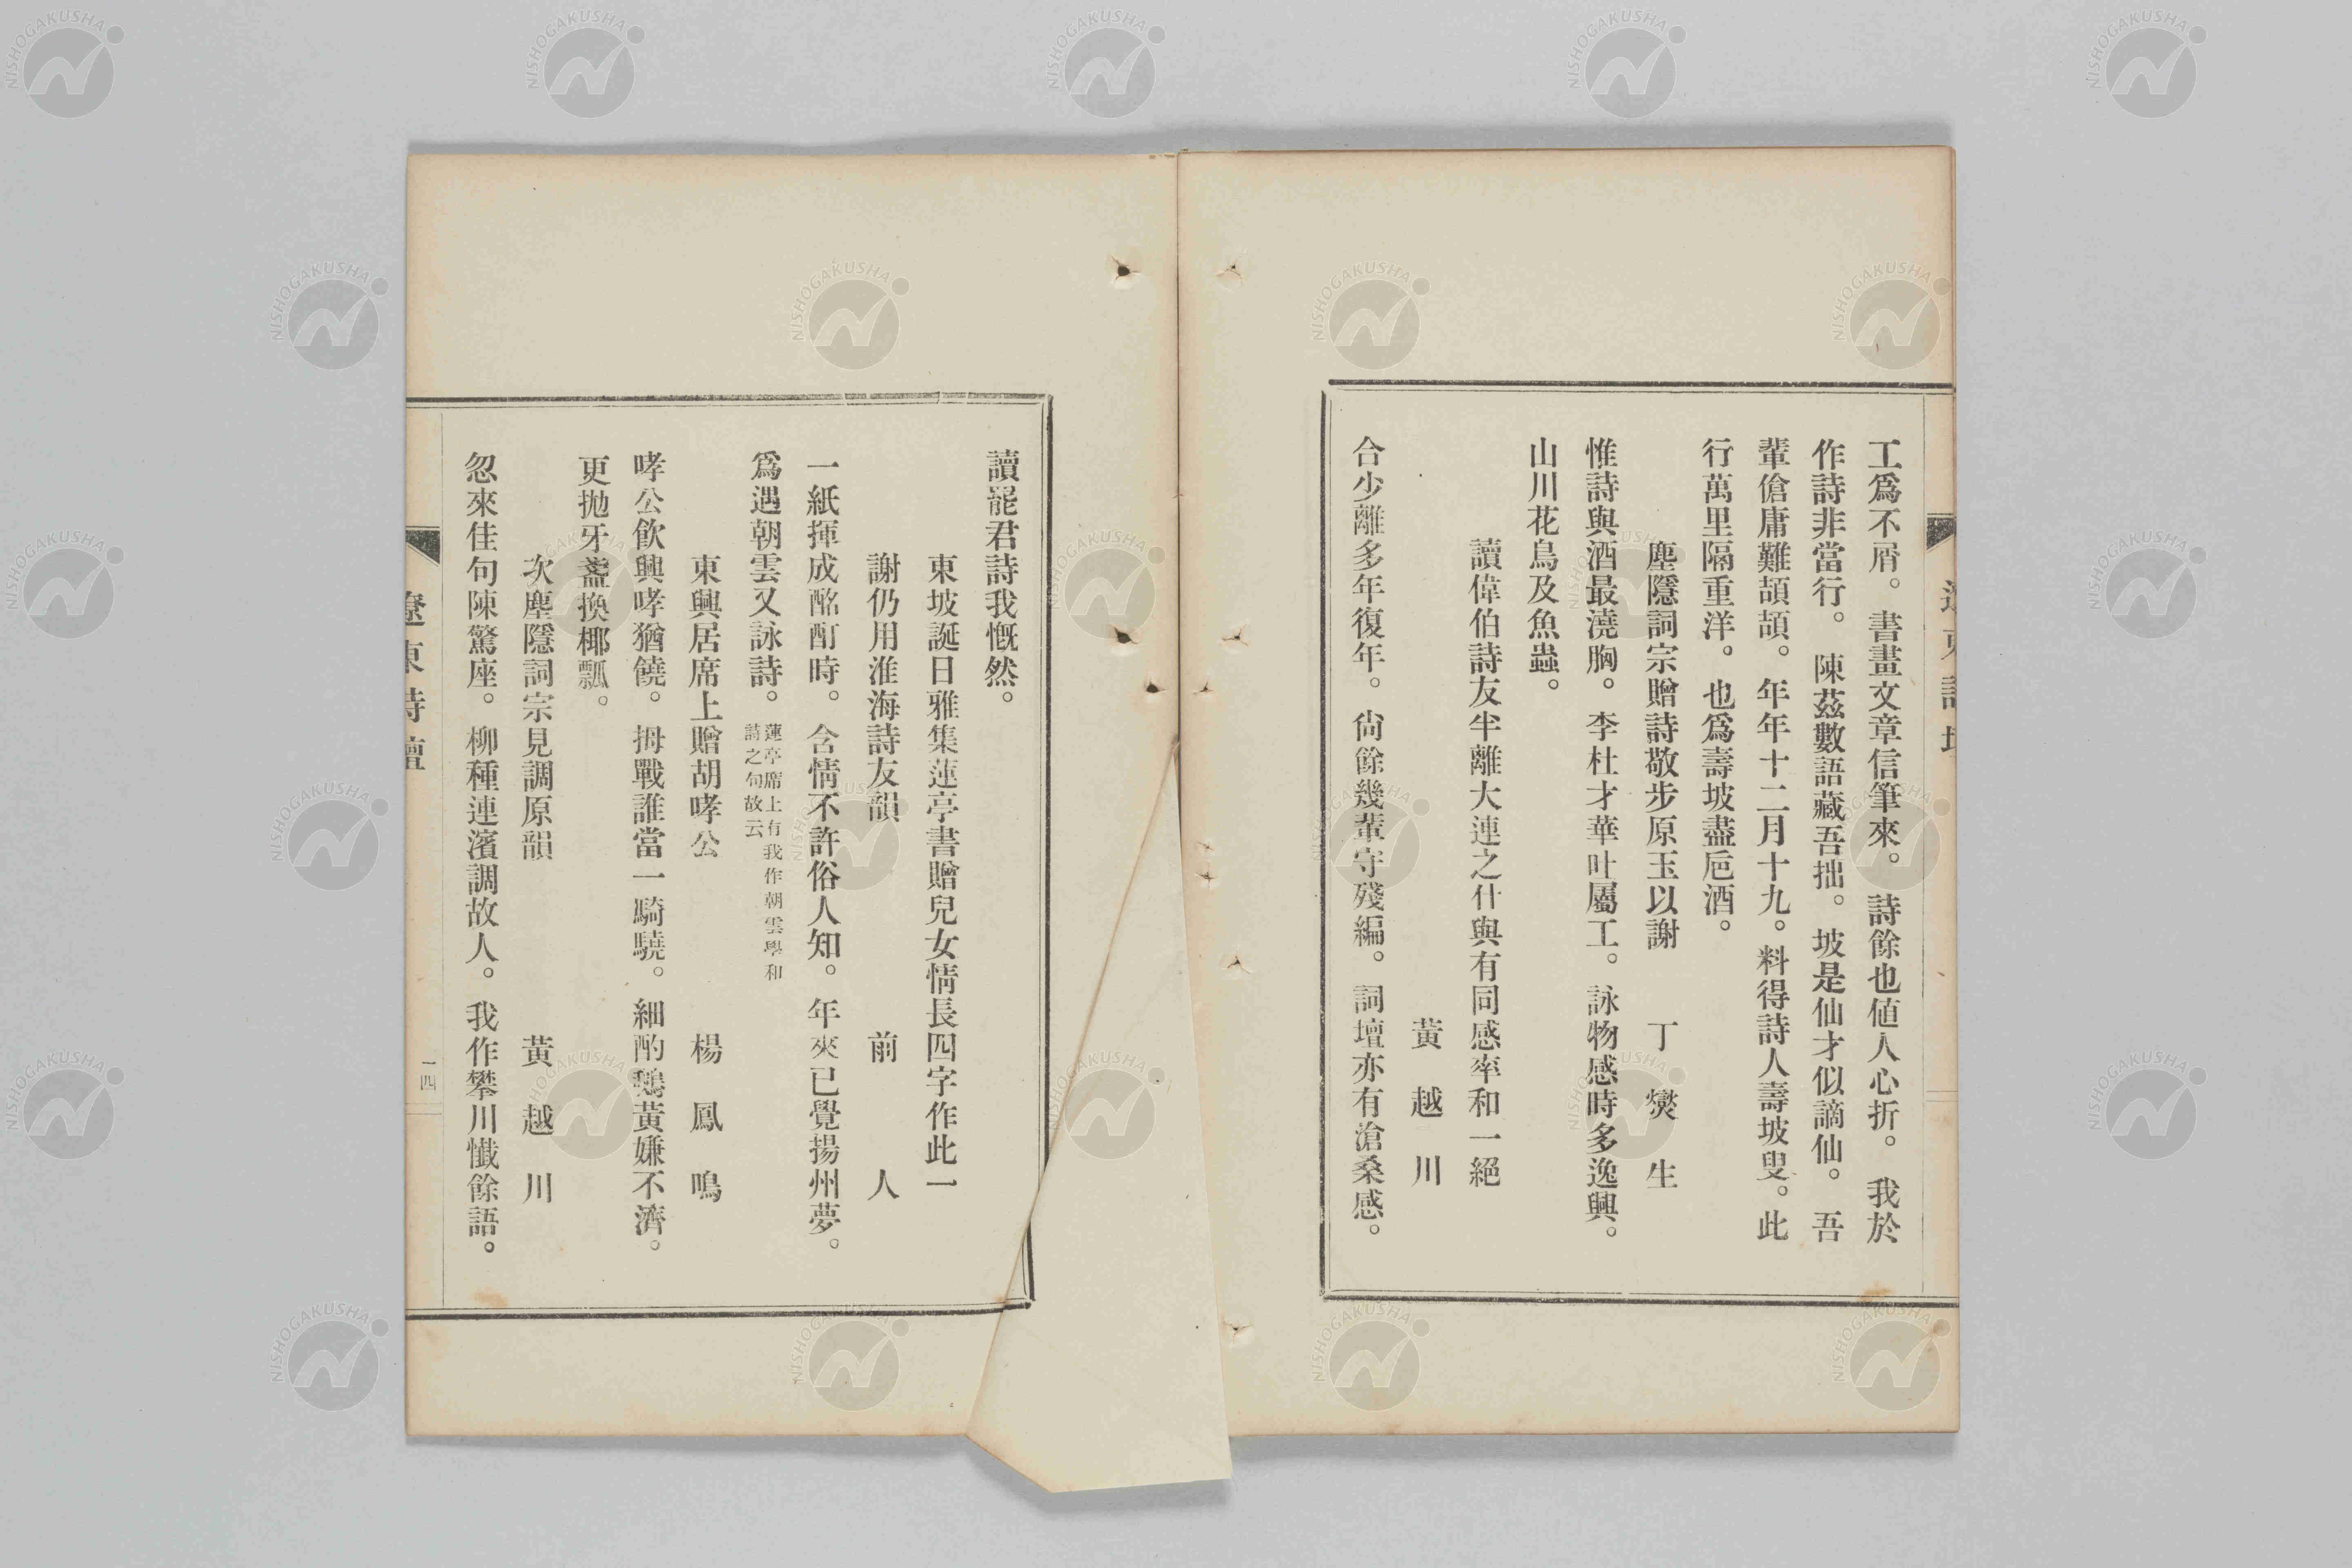 工爲不屑。書畫文章信筆來。詩餘也値人心折。我於
作詩非當行。陳茲數語藏吾拙。坡是仙才似謫仙。吾
輩傖庸難頡頏。年年十二月十九。料得詩人壽坡叟。此
行萬里隔重洋。也爲壽坡盡巵酒。
塵隱詞宗贈詩敬步原玉以謝　丁爕生
惟詩與酒最澆胸。李杜才華吐屬工。詠物感時多逸興。
山川花鳥及魚蟲。
讀偉伯詩友半離大連之什與有同感率和一絕
黃越川
合少離多年復年。尙餘幾輩守殘編。詞壇亦有滄桑感。
讀罷君詩我慨然。
東坡誕日雅集蓮亭書贈兒女情長四字作此一
謝仍用淮海詩友韻　前人
一紙揮成酩酊時。含情不許俗人知。年來已覺揚州夢。
爲遇朝雲又詠詩。蓮亭席上有我作朝雲學和
詩之句故云
東興居席上贈胡哮公　楊鳳鳴
哮公飮興哮猶饒。拇戰誰當一騎驍。細酌鵝黃嫌不濟。
更抛牙盞換椰瓢。
次塵隱詞宗見調原韻　黃越川
忽來佳句陳驚座。柳種連濱調故人。我作攀川懺餘語。
遼東詩壇
一四
NISHOGAKUSHA